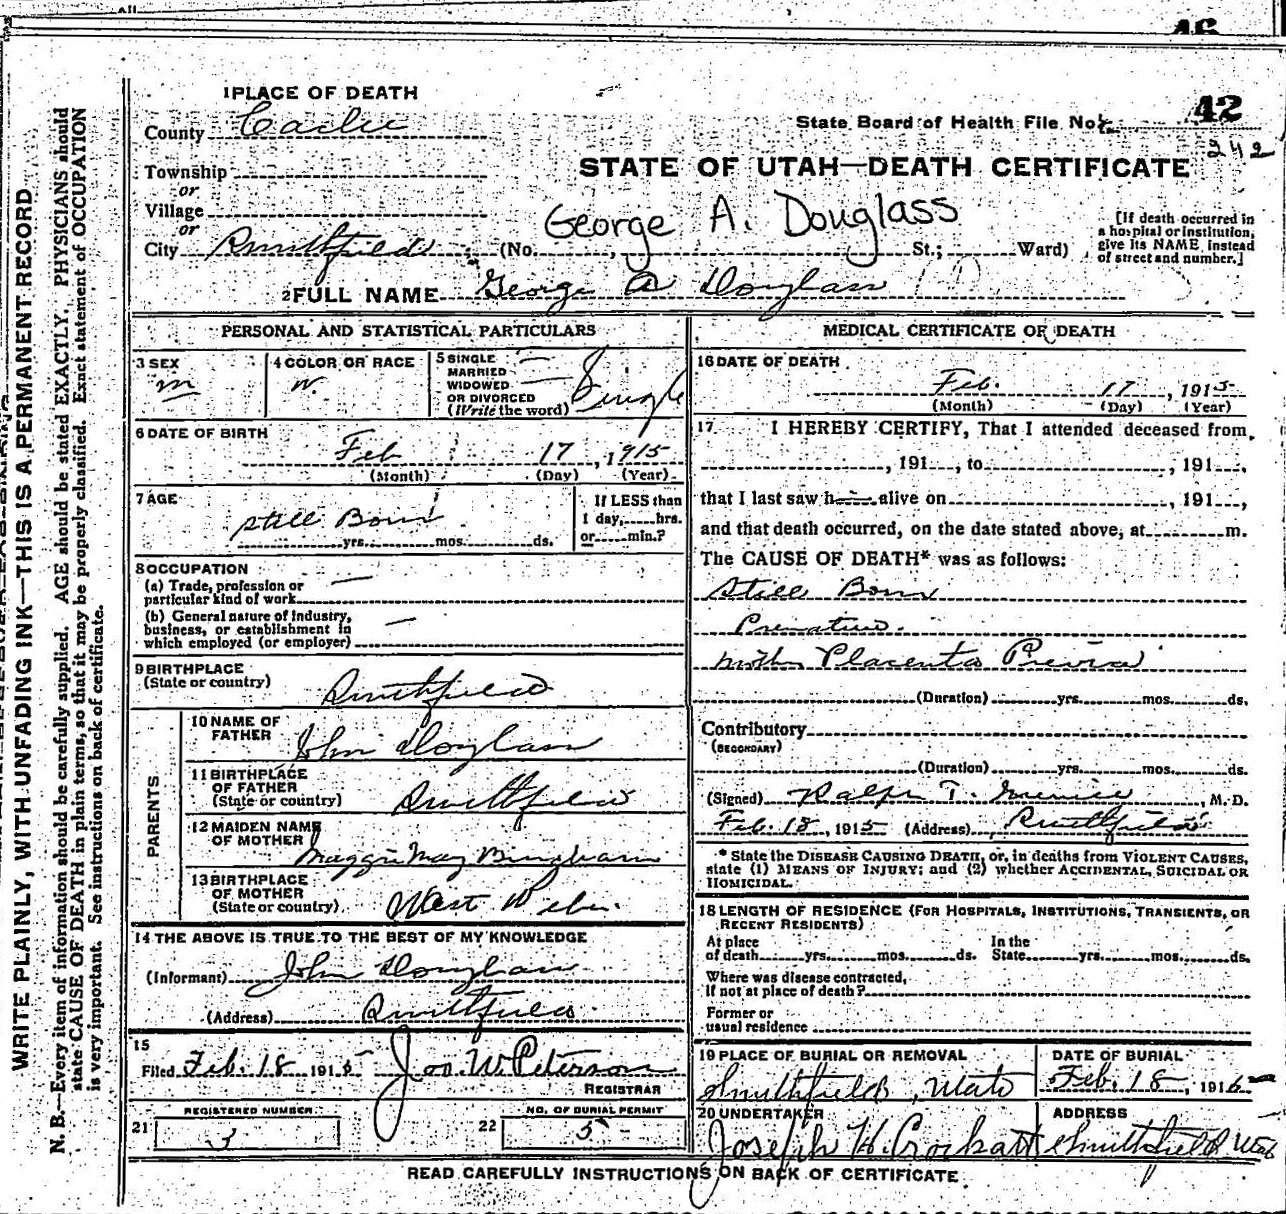 46
1 PLACE OF DEATH
County Cache
42
State Board of Health File No.
242
Township
or
Village
or
City Smithfield
STATE OF UTAH—DEATH CERTIFICATE
George A. Douglass
(No. , St.; Ward)
[If death occurred in
a hospital or institution,
give its NAME, instead
of street and number.]
2 FULL NAME George A Douglass
PERSONAL AND STATISTICAL PARTICULARS
3 SEX
m
4 COLOR OR RACE
W.
5 SINGLE
MARRIED
WIDOWED
OR DIVORCED
(Write the word)
Single
6 DATE OF BIRTH
Feb 17, 1915
(Month) (Day) (Year)
7 AGE
Still Born
yrs. mos. ds.
If LESS than
1 day, hrs.
or min.?
8 OCCUPATION
(a) Trade, profession or
particular kind of work
(b) General nature of industry,
business, or establishment in
which employed (or employer)
9 BIRTHPLACE
(State or country)
Smithfield
PARENTS
10 NAME OF
FATHER
John Douglass
11 BIRTHPLACE
OF FATHER
(State or country)
Smithfield
12 MAIDEN NAME
OF MOTHER
Maggie May Bingham
13 BIRTHPLACE
OF MOTHER
(State or country)
West Weber
14 THE ABOVE IS TRUE TO THE BEST OF MY KNOWLEDGE
(Informant) John Douglass
(Address) Smithfield
15
Filed Feb. 18 1915 Jos. W. Peterson
REGISTRAR
REGISTERED NUMBER
21 3
NO. OF BURIAL PERMIT
22 5
MEDICAL CERTIFICATE OF DEATH
16 DATE OF DEATH
Feb. 17, 1915
(Month) (Day) (Year)
17 I HEREBY CERTIFY, That I attended deceased from
, 191 , to , 191 ,
that I last saw h alive on , 191 ,
and that death occurred, on the date stated above, at m.
The CAUSE OF DEATH* was as follows:
Still Born
Premature.
Mother Placenta Previa
(Duration) yrs. mos. ds.
Contributory
(SECONDARY)
(Duration) yrs. mos. ds.
(Signed) Ralph T. , M. D.
Feb. 18, 1915 (Address) Smithfield
* State the DISEASE CAUSING DEATH, or, in deaths from VIOLENT CAUSES,
state (1) MEANS OF INJURY; and (2) whether ACCIDENTAL, SUICIDAL OR
HOMICIDAL.
18 LENGTH OF RESIDENCE (FOR HOSPITALS, INSTITUTIONS, TRANSIENTS, OR
RECENT RESIDENTS)
At place
of death yrs. mos. ds.
In the
State yrs. mos. ds.
Where was disease contracted,
if not at place of death?
Former or
usual residence
19 PLACE OF BURIAL OR REMOVAL
Smithfield, Utah
DATE OF BURIAL
Feb. 18, 1915
20 UNDERTAKER
Joseph H. Crockatt
ADDRESS
Smithfield Utah
READ CAREFULLY INSTRUCTIONS ON BACK OF CERTIFICATE
WRITE PLAINLY, WITH UNFADING INK—THIS IS A PERMANENT RECORD
N. B.—Every item of information should be carefully supplied. AGE should be stated EXACTLY. PHYSICIANS should
state CAUSE OF DEATH in plain terms, so that it may be properly classified. Exact statement of OCCUPATION
is very important. See instructions on back of certificate.